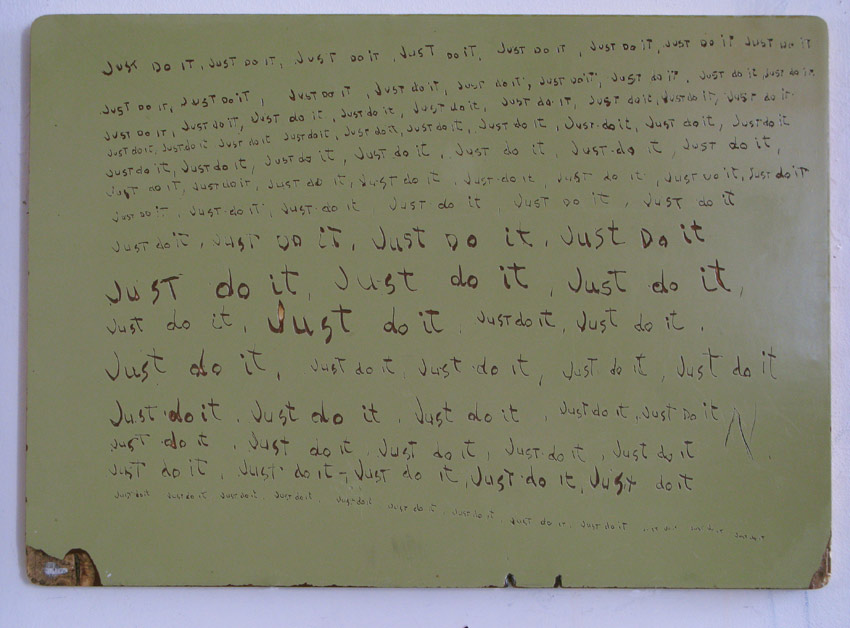 Just Do iT, JusT Do iT, JusT Do iT, JusT Do iT, JusT Do iT, Just Do iT, Just Do iT JusT Do iT
JusT Do iT, JusT Do iT, JusT Do iT, JusT do iT, JusT do iT, JusT Do iT, JusT do iT, JusT do iT, JusT do iT
JusT Do iT, JusT do iT, JusT do iT, JusT do iT, JusT do iT, JusT do iT, JusT do iT, JusT do iT, JusT do iT
Just do it, Just do it Just do it Just do it, Just do it, Just do it, Just do it, Just do it, Just do it, Just do it
Just do it, Just do it, Just do it, Just do it, Just do it, Just do it, Just do it,
JusT do iT, Just do it, Just do it, Just do it, Just do it, Just do it, Just Do it, Just do iT
JusT Do iT, JusT do iT, JusT do iT JusT do it, JusT Do iT, JusT do iT
JusT do iT, JusT Do iT, Just Do it, Just Do it
JusT do it, Just do it, Just do it,
Just do it, Just do it, Just do it, Just do it,
Just do it, Just do it, Just do it, Just do it, Just do it
Just do it, Just do it, Just do it, Just do it, Just Do it N
Just do it, Just do it, Just do it, Just do it, Just do it
Just do it, Just do it, Just do it, Just do it, Just do it
Just do it Just do it Just do it, Just do it, Just do it, Just do it, Just do it, Just do it, Just do it